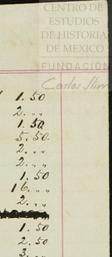 CENTRO DE
ESTUDIOS
DE HISTORIA
DE MÉXICO
FUNDACIÓN
Carlos Slim
1.50
2...
1.50
5.50
2...
2...
2...
1.50
16...
2...
1.50
2.50
3...